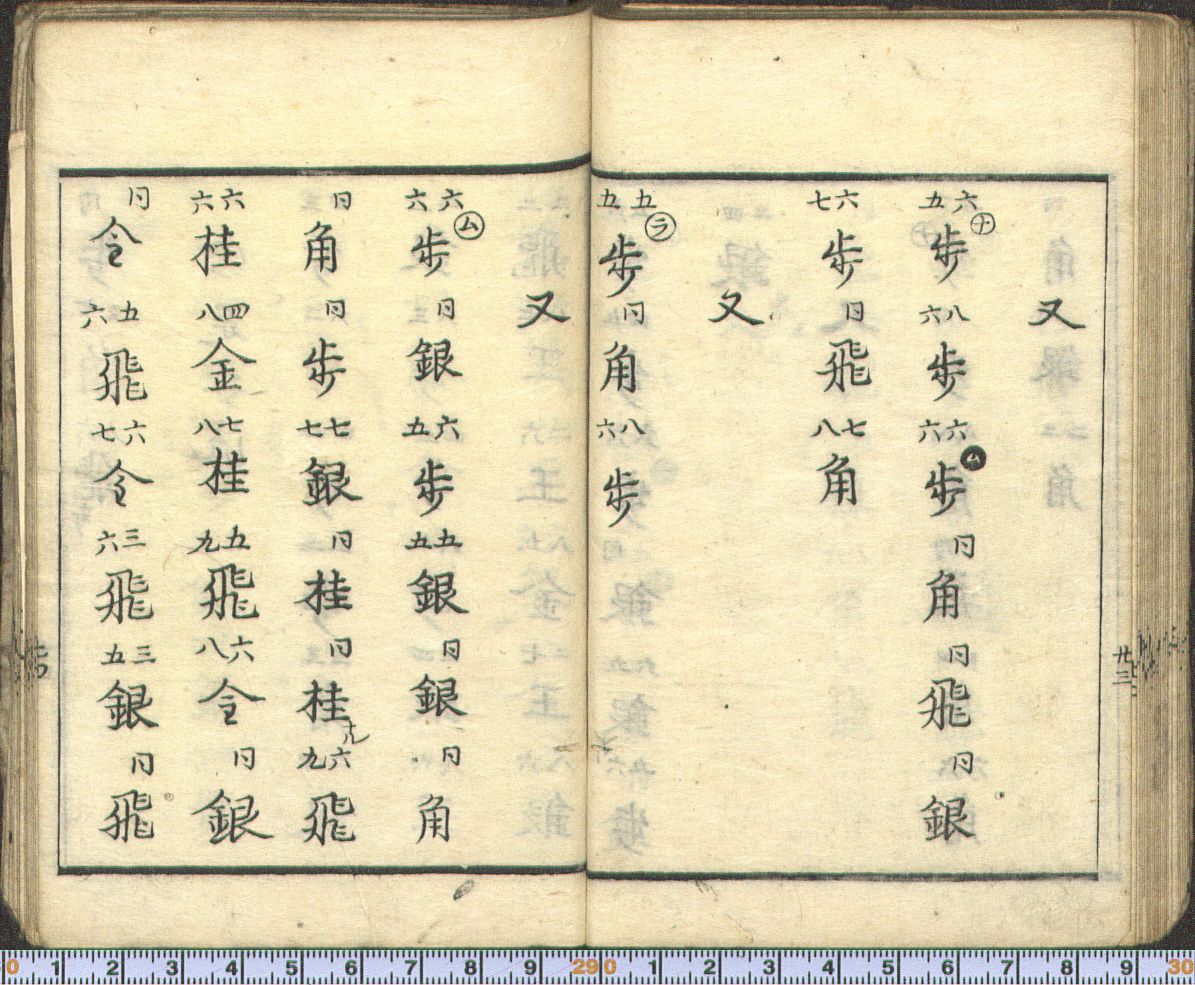 又
六五㋤歩 八六歩 六六ム歩 同角 同飛 同銀
六七歩 同飛 七八角
又
五五㋶歩 同角 八六歩
廿三
又
六六㋰歩 同銀 六五歩 五五銀 同銀 同角
同角 同歩 七七銀 同桂 同桂ナル 六九飛
六六桂 四八金 七八桂 五九飛 六八令 同銀
同令 五六飛 六七令 三六飛 三五銀 同飛